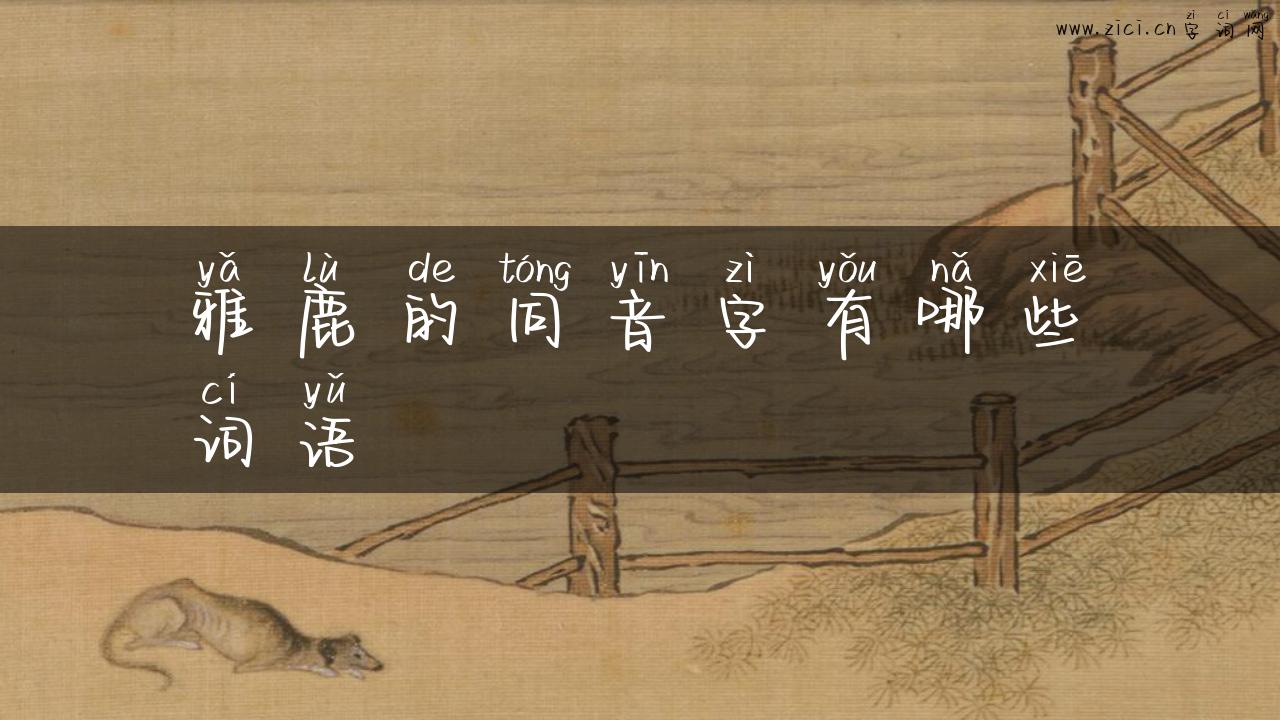 zì cí wǎng
www.zici.cn 字词网
yǎ lù de tóng yīn zì yǒu nǎ xiē
雅鹿的同音字有哪些
cí yǔ
词语